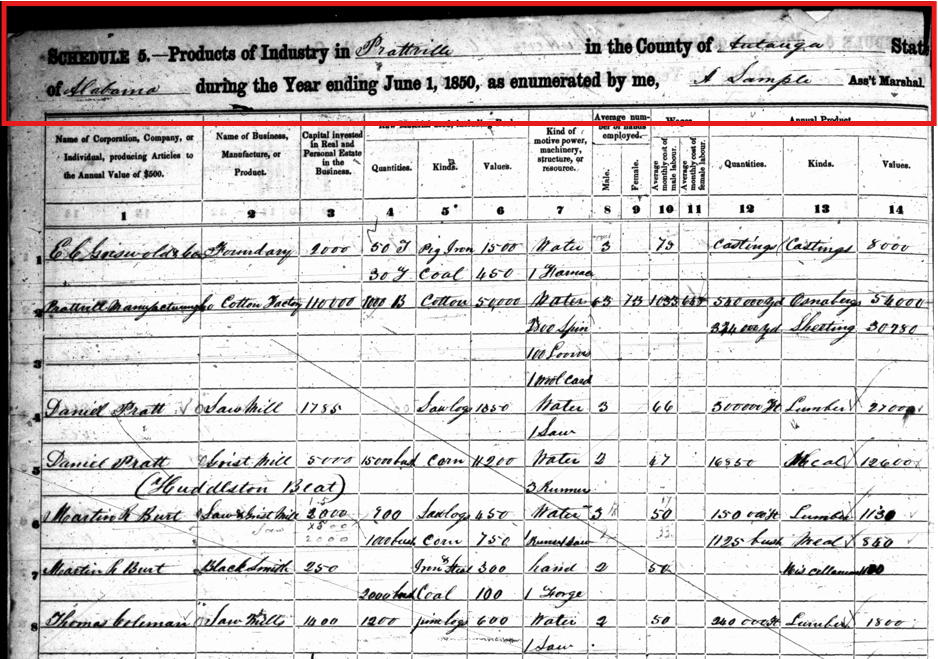 SCHEDULE 5.—Products of Industry in Prattville in the County of Autauga State
of Alabama during the Year ending June 1, 1850, as enumerated by me, A Sample Ass't Marshal.
Name of Corporation, Company, or Individual, producing Articles to the Annual Value of $500.
Name of Business, Manufacture, or Product.
Capital invested in Real and Personal Estate in the Business.
Quantities. Kinds. Values.
Kind of motive power, machinery, structure, or resource.
Average number of hands employed.
Male. Female.
Wages.
Average monthly cost of male labour. Average monthly cost of female labour.
Annual Product.
Quantities. Kinds. Values.
1 2 3 4 5 6 7 8 9 10 11 12 13 14
1 E C Griswold & Co Foundary 2000 50 T Pig Iron 1500 Water 3 75 Castings Castings 8000
30 T Coal 450 1
2 Cotton Factory 110000 Cotton 50,000 Water 63 73 1033 Osnabergs 54000
Spin Sheeting 30780
3 100 Looms
1 wool Card
4 Daniel Pratt Saw Mill 1785 Saw logs 1350 Water 3 66 300000 ft Lumber
1 Saw
5 Daniel Pratt Grist Mill 5000 15000 bush Corn Water 2 47 16850 Meal 12600
(Huddlston Beat) 3 Runner
6 Martin R Burt Saw & Grist Mill 2000 900 Saw logs 450 Water 3 50 150 000 ft Lumber
2000 1000 bush Corn 750 1125 bush Meal 850
7 Martin R Burt Black Smith 250 Iron & Steel 300 hand 2 50
2000 bush Coal 100 1 Forge
8 Thomas Coleman Saw Mill 1400 1200 pine logs 600 Water 2 50 240 000 ft Lumber 1800
1 Saw